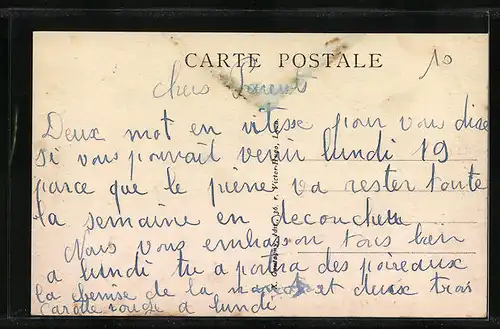 CARTE POSTALE
10
chers Parents
Deux mot en vitesse pour vous dire
si vous pouvait venir lundi 19
parce que le pière va rester toute
la semaine en decouche
Nous vous embrason tous bien
a lundi tu aportra des poireaux
la chemise de la et deux trois
Carotte rouge a lundi